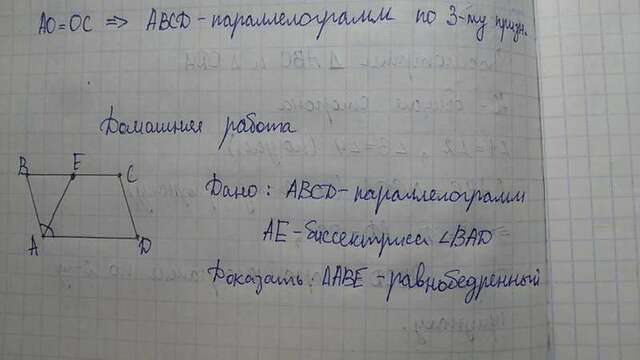 AO=OC => ABCD-параллелограмм по 3-му призн.
Домашняя работа
B E C
A D
Дано: ABCD-параллелограмм
AE-биссектриса ∠BAD
Доказать: ΔABE-равнобедренный